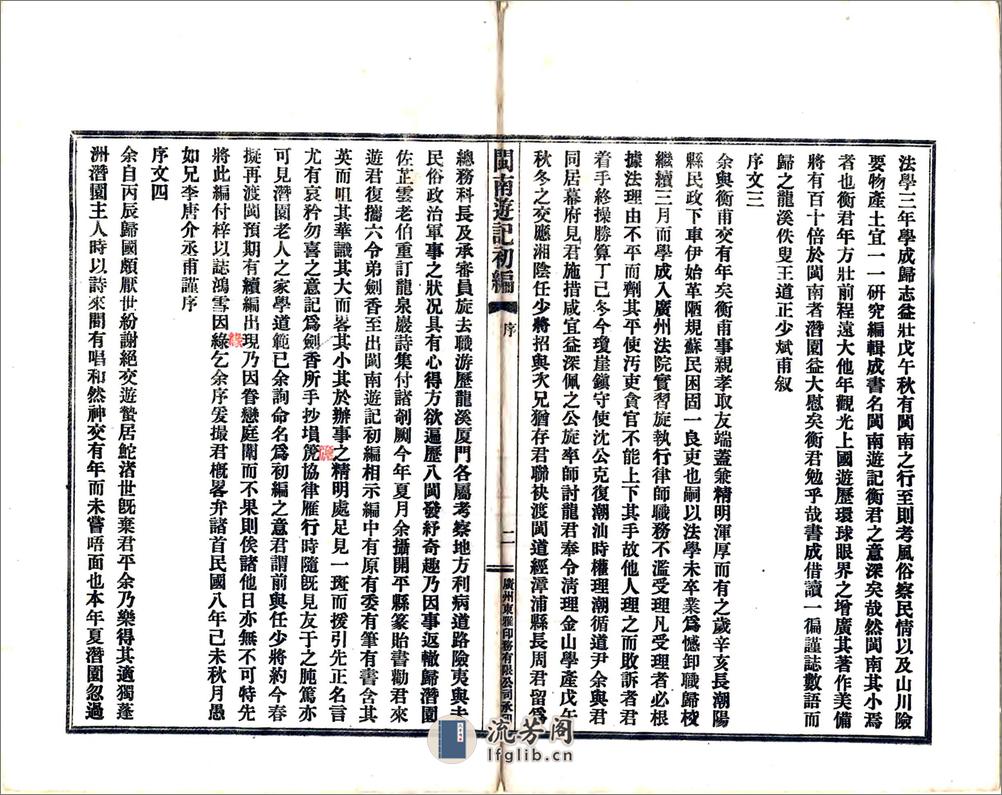 法學三年學成歸志益壯戊午秋有閩南之行至則考風俗察民情以及山川險
要物產土宜一一研究編輯成書名閩南遊記衡君之意深矣哉然閩南其小焉
者也衡君年方壯前程遠大他年觀光上國遊歷環球眼界之增廣其著作美備
將有百十倍於閩南者潛園益大慰矣衡君勉乎哉書成借讀一徧謹誌數語而
歸之龍溪佚叟王道正少斌甫叙
序文三
余與衡甫交有年矣衡甫事親孝取友端蓋兼精明渾厚而有之歲辛亥長潮陽
縣民政下車伊始革陋規蘇民困固一良吏也嗣以法學未卒業爲憾卸職歸校
繼續三月而學成入廣州法院實習旋執行律師職務不濫受理凡受理者必根
據法理由不平而劑其平使汚吏貪官不能上下其手故他人理之而敗訴者君
着手終操勝算丁己冬今瓊崖鎭守使沈公克復潮汕時權理潮循道尹余與君
同居幕府見君施措咸宜益深佩之公旋率師討龍君奉令清理金山學產戊午
秋冬之交應湘陰任少將招與次兄猶存君聯袂渡閩道經漳浦縣長周君留爲
閩南遊記初編
序
二
廣州東雅印務有限公司承印
總務科長及承審員旋去職游歷龍溪厦門各屬考察地方利病道路險夷與夫
民俗政治軍事之狀況具有心得方欲遍歷八閩發紓奇趣乃因事返轍歸潛園
佐芷雲老伯重訂龍泉巖詩集付諸剞劂今年夏月余攝開平縣篆貽書勸君來
遊君復攜六令弟劍香至出閩南遊記初編相示編中有原有委有筆有書含其
英而咀其華識其大而畧其小其於辦事之精明處足見一斑而援引先正名言
尤有哀矜勿喜之意記爲劍香所手抄塤箎協律雁行時隨旣見友于之肫篤亦
可見潛園老人之家學道範已余詢命名爲初編之意君謂前與任少將約今春
擬再渡閩預期有續編出現乃因眷戀庭闈而不果則俟諸他日亦無不可特先
將此編付梓以誌鴻雪因綠乞余序爰撮君概畧弁諸首民國八年己未秋月愚
如兄李唐介丞甫謹序
序文四
余自丙辰歸國頗厭世紛謝絕交遊蟄居鮀渚世旣棄君平余乃樂得其適獨蓬
洲潛園主人時以詩來間有唱和然神交有年而未嘗晤面也本年夏潛園忽過
流芳阁
lfglib.cn